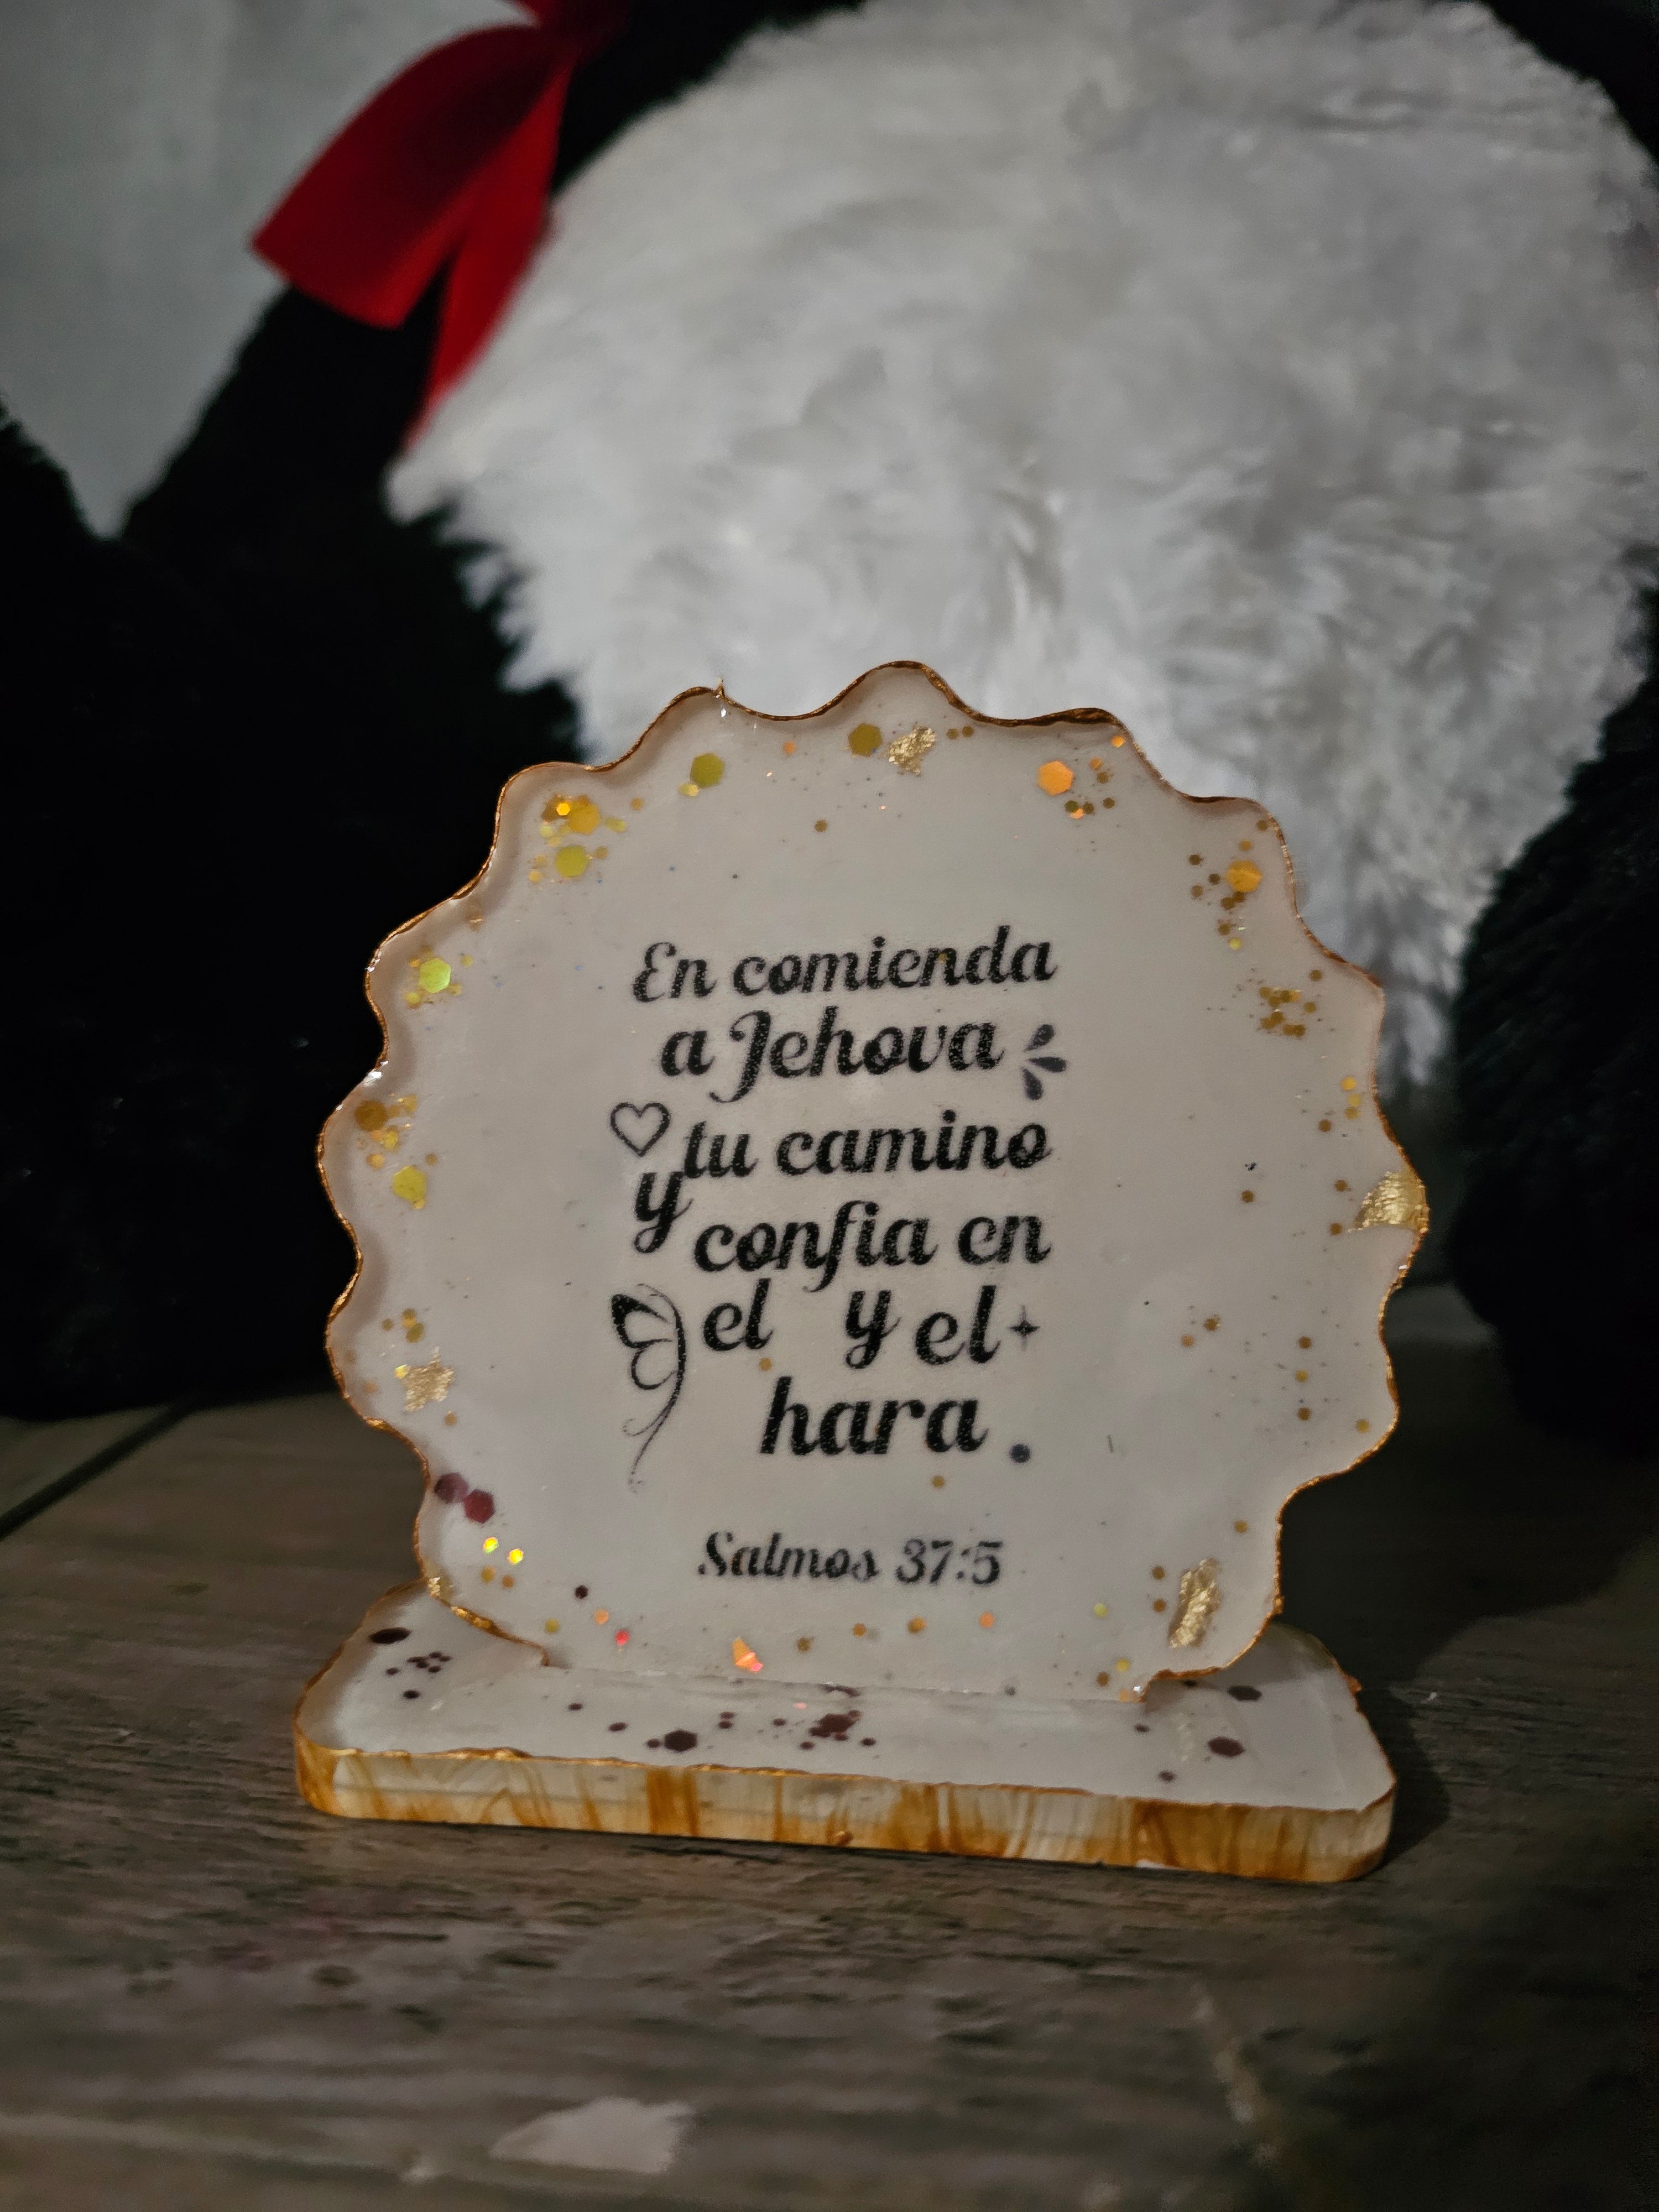 En comienda
a Jehova
tu camino
y confia en
el y el
hara .
Salmos 37:5